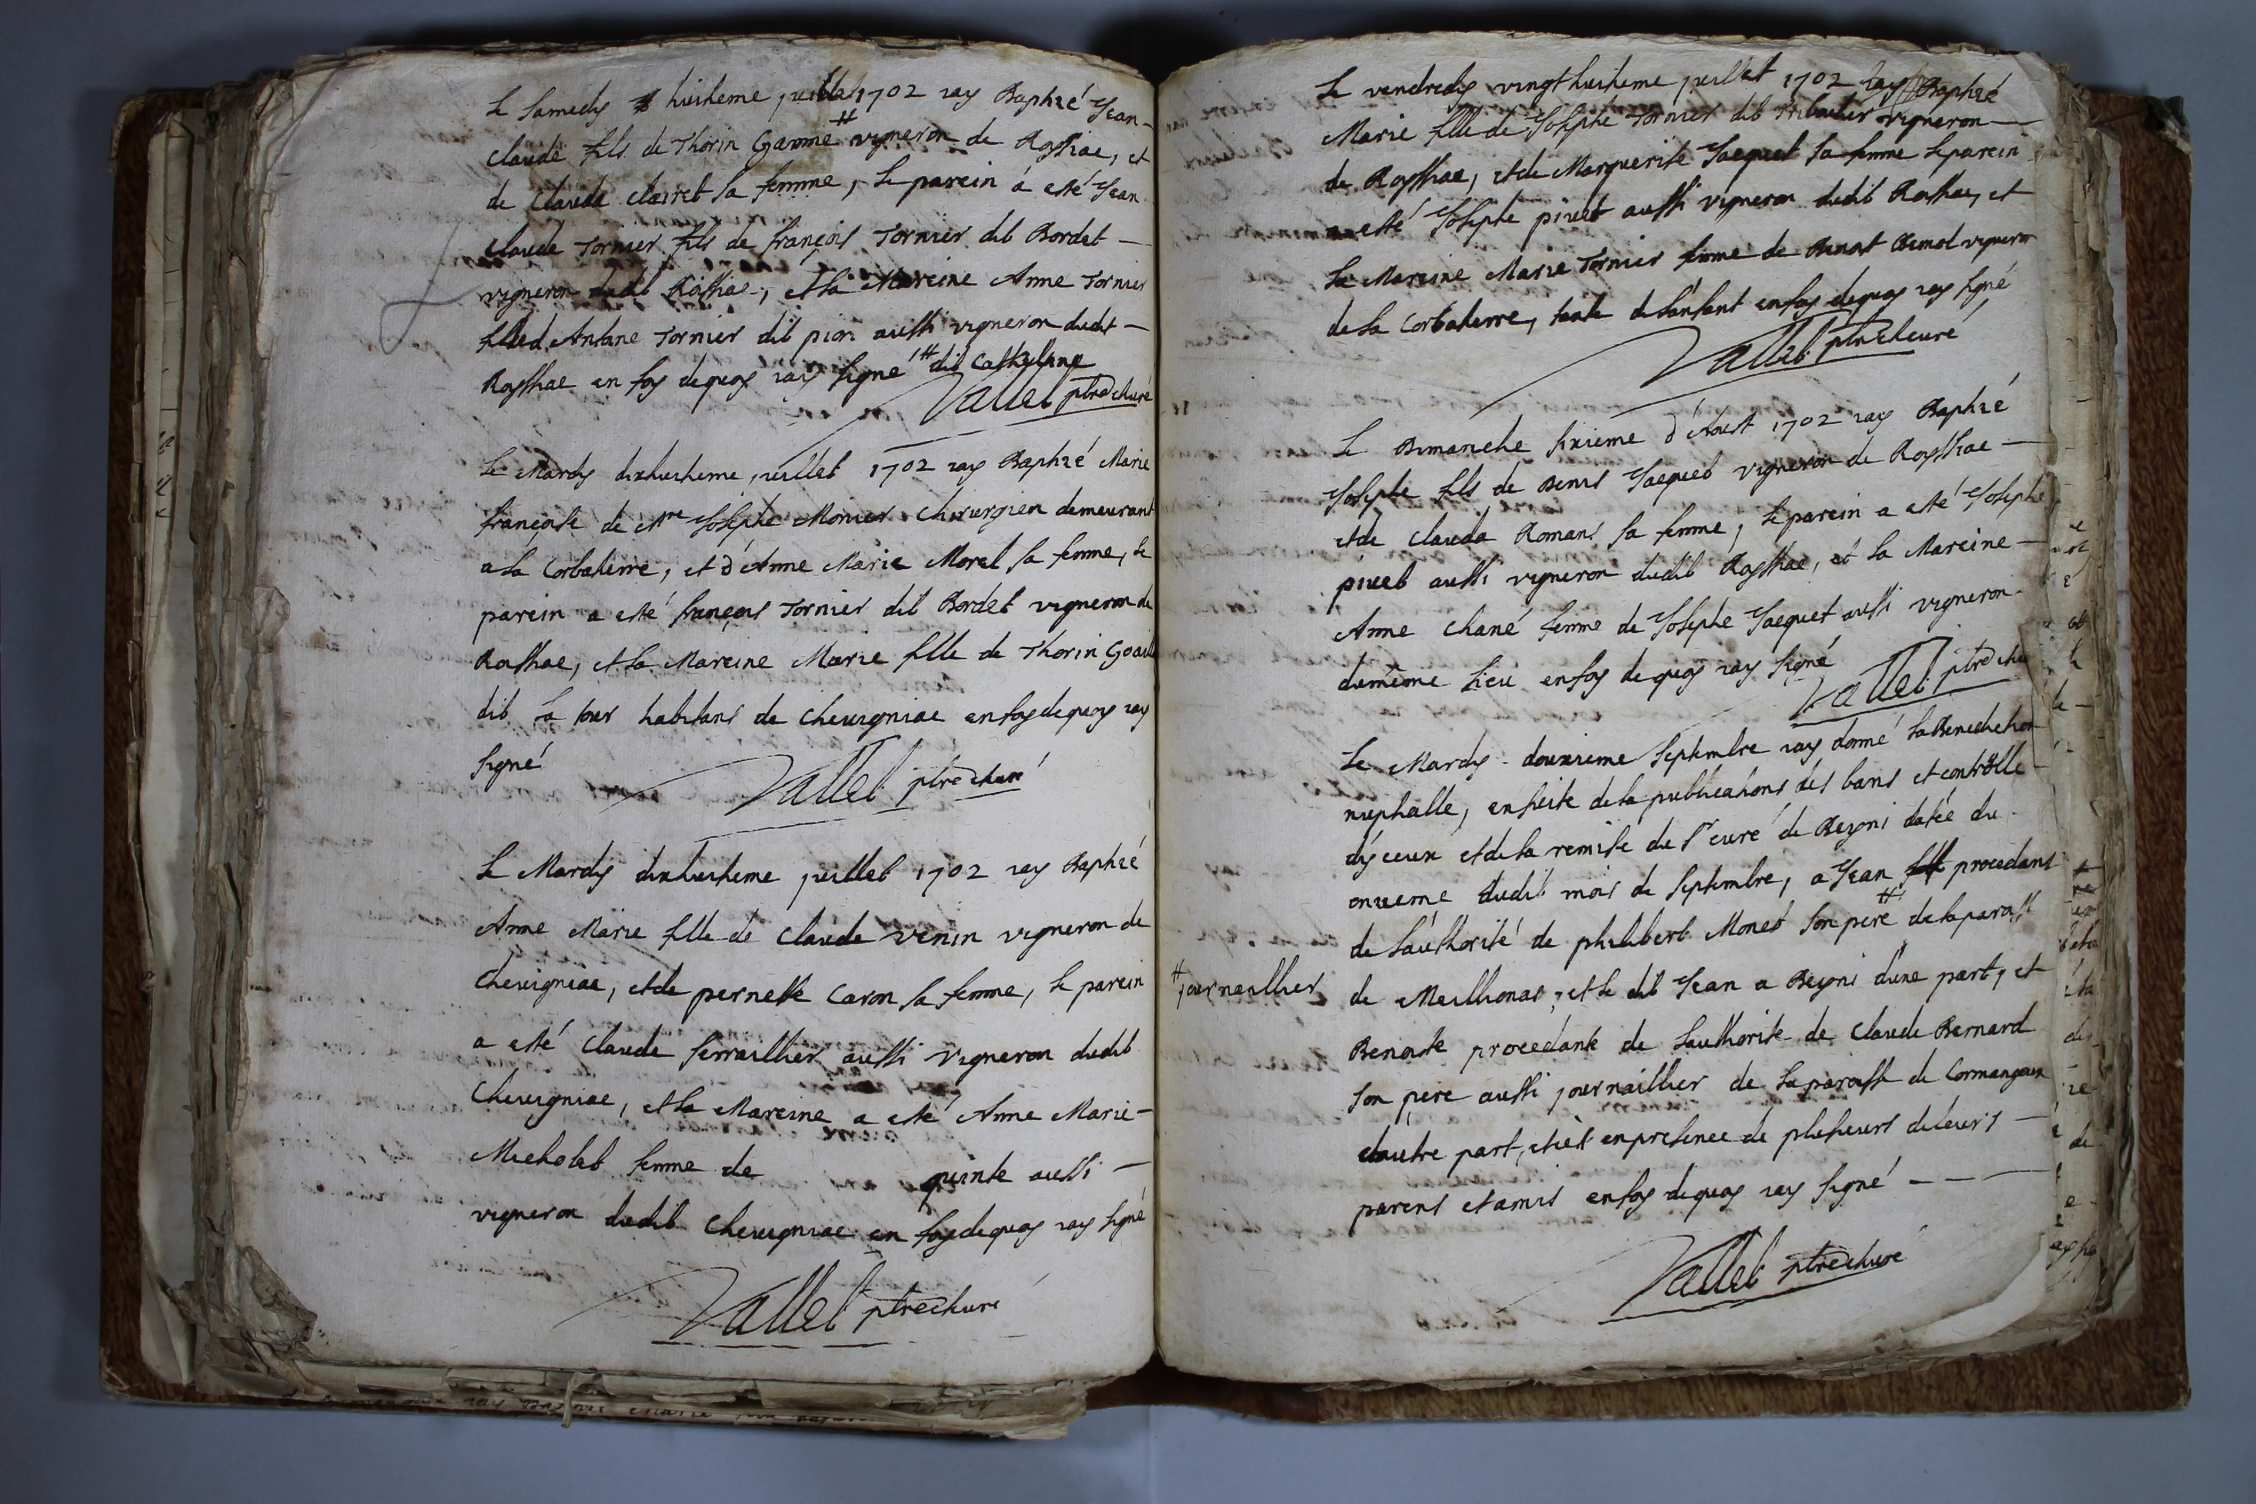 Le Samedy huitieme juillet 1702 jay Baptizé Jean
claude fils de Thorin Gamme # vigneron de Roissiae, et
de Claude clairet sa femme, Le parein a esté Jean
claude Tornier fils de françois Tornier dit Bordet —
vigneron dudit Roissiae, et la Mareine Anne Tornier
fille d'Antoine Tornier dit pion aussi vigneron dudit —
Roissiae en foy dequoy jay signé # dit
Vallet ptre & curé
Le Mardy dixhuitieme juillet 1702 jay Baptizé Marie
françoise de Mre Josephe Monier Chirurgien demeurant
a la Corbatierre, et d'Anne Marie Morel sa femme, le
parein a esté françois Tornier dit Bordet vigneron de
Roissiae, et la Mareine Marie fille de Thorin
dit la tour habitans de Cheuigniae en foy dequoy jay
signé
Vallet ptre & curé
Le Mardy dixhuitieme juillet 1702 jay Baptizé
Anne Marie fille de Claude venin vigneron de
Cheuigniae, et de pernette Caron sa femme, le parein
a esté Claude ferraillier aussi vigneron dudit
Cheuigniae, et la Mareine a esté Anne Marie —
Micholet femme de quinte aussi —
vigneron dudit Cheuigniae en foy dequoy jay signé
Vallet ptre & curé
Le vendredy vingt huitieme juillet 1702 jay Baptizé
Marie fille de Josephe Tornier dit vigneron —
de Roissiae, et de Marguerite Jacquet sa femme le parein
a esté Josephe piuet aussi vigneron dudit Roissiae, et
la Mareine Marie Tornier femme de Benoit vigneron
de la Corbatierre, tante de l'anfant en foy dequoy jay signé
Vallet ptre & curé
Le Dimanche sixieme d'Aoust 1702 jay Baptizé
Josephe fils de Denis Jacquet vigneron de Roissiae —
et de Clauda Romans sa femme, le parein a esté Josephe
piuet aussi vigneron dudit Roissiae, et la Mareine —
Anne Chané femme de Josephe Jacquet aussi vigneron
du mème lieu en foy dequoy jay signé
Vallet ptre & cu
Le Mardy douzieme Septembre jay donné la Benediction
nuptialle, en suite de la publications des bans et controlle
d'yceux et de la remise du Sr curé de Bezoni datée du
onzieme dudit mois de Septembre, a Jean procedant
de l'authorité de philibert Monet son pere # de la paroisse
# journaillier
de Meillionas, et le dit Jean a Bezoni d'une part, et
Benoite procedante de l'authorité de Claude Bernard
son pere aussi journaillier de la paroisse de Cormangoux
d'autre part, et c'est en presence de plusieurs de leurs —
parens et amis en foy dequoy jay signé — — —
Vallet ptre & curé